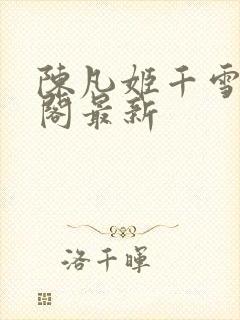 陳凡姬千雪
閣最新
洛千暉